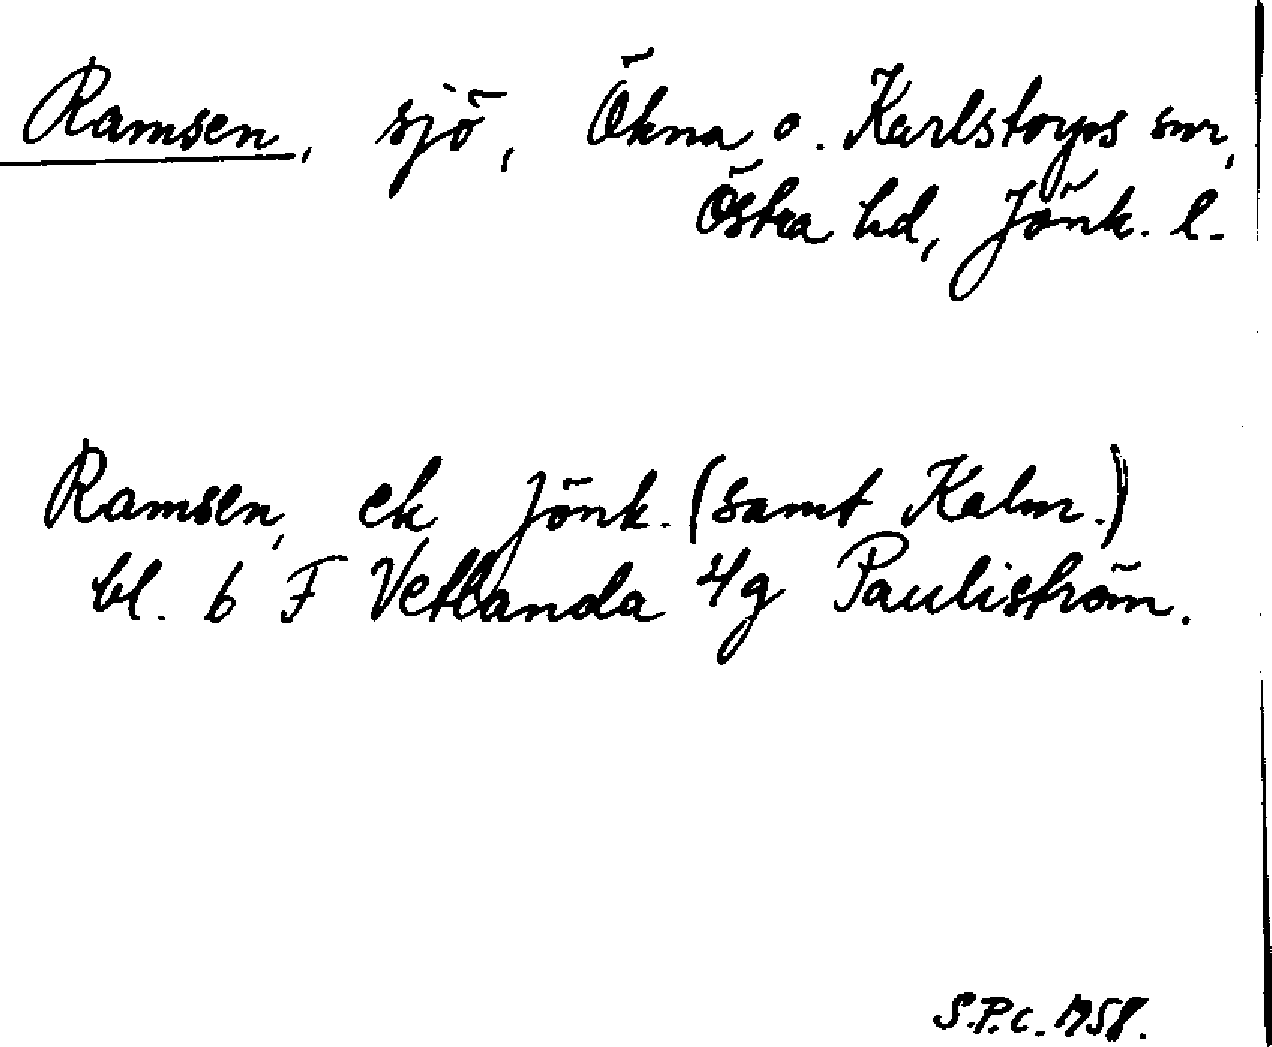 Ramsen, sjö, Ökna o. Karlstorps snr,
Östra hd, Jönk. l.
Ramsen, ek Jönk. (samt Kalm.)
bl. 6 F Vetlanda 4g Pauliström.
S.P.C. 1958.